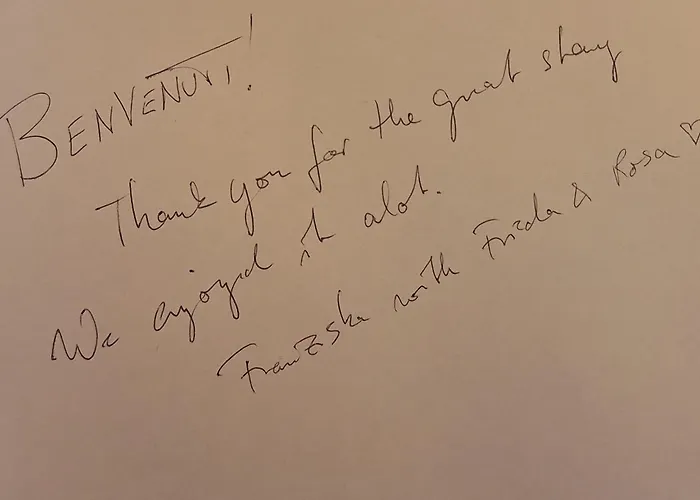 BENVENUTI!
Thank you for the great stay
We enjoyed it alot.
Franziska with Frida & Rosa ♡